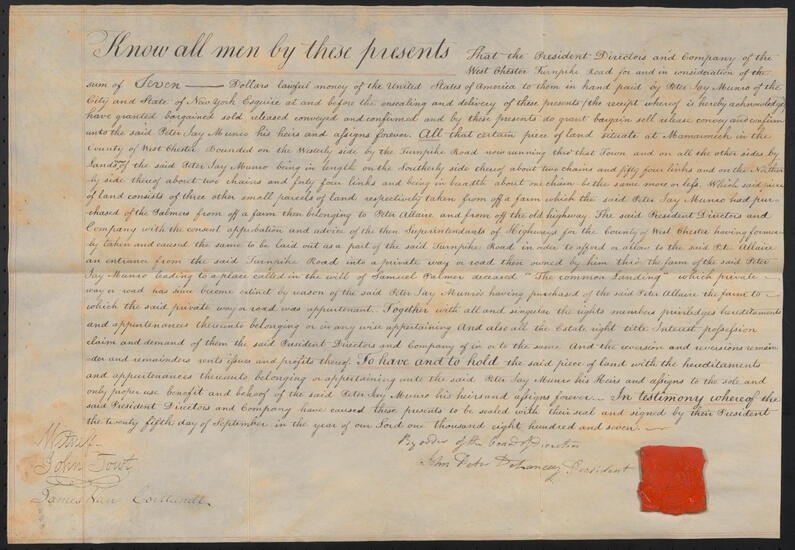 Know all men by these presents That the President Directors and Company of the
West Chester Turnpike Road for and in consideration of the
sum of Seven Dollars lawful money of the United States of America to them in hand paid by Peter Jay Munro of the
City and State of New York Esquire at and before the ensealing and delivery of these presents (the receipt whereof is hereby acknowledged
have granted bargained sold released conveyed and confirmed and by these presents do grant bargain sell release convey and confirm
unto the said Peter Jay Munro his heirs and assigns forever. All that certain piece of land situate at Mamaroneck in the
County of West Chester Bounded on the Westerly side by the Turnpike Road now running thro' that Town and on all the other sides by
Lands of the said Peter Jay Munro being in length on the Southerly side thereof about two chains and fifty four links and on the Norther
ly side thereof about two chains and forty four links and being in breadth about one chain be the same more or less. Which said piece
of land consists of three other small parcels of land respectively taken from off a farm which the said Peter Jay Munro had pur-
chased of the Palmers from off a farm then belonging to Peter Allaire and from off the old highway. The said President Directors and
Company with the consent approbation and advice of the then Superintendants of Highways for the County of West Chester having former-
ly taken and caused the same to be laid out as a part of the said Turnpike Road in order to afford or allow to the said Peter Allaire
an entrance from the said Turnpike Road into a private way or road then owned by him thro' the farm of the said Peter
Jay Munro leading to a place called in the will of Samuel Palmer deceased "The common Landing" which private
way or road has since become extinct by reason of the said Peter Jay Munro's having purchased of the said Peter Allaire the farm to
which the said private way or road was appurtenant. Together with all and singular the rights members priviledges hereditaments
and appurtenances thereunto belonging or in any wise appertaining And also all the Estate right title Interest possession
claim and demand of them the said President Directors and Company of in or to the same And the reversion and reversions remain
der and remainders rents issues and profits thereof. To have and to hold the said piece of land with the hereditaments
and appurtenances thereunto belonging or appertaining unto the said Peter Jay Munro his Heirs and assigns to the sole and
only proper use benefit and behoof of the said Peter Jay Munro his heirs and assigns forever. In testimony whereof the
said President Directors and Company have caused these presents to be sealed with their seal and signed by their President
the twenty fifth day of September in the year of our Lord one thousand eight hundred and seven.
By order of the board of Directors
John Peter DeLancey President
Witness
John
James Van Cortlandt